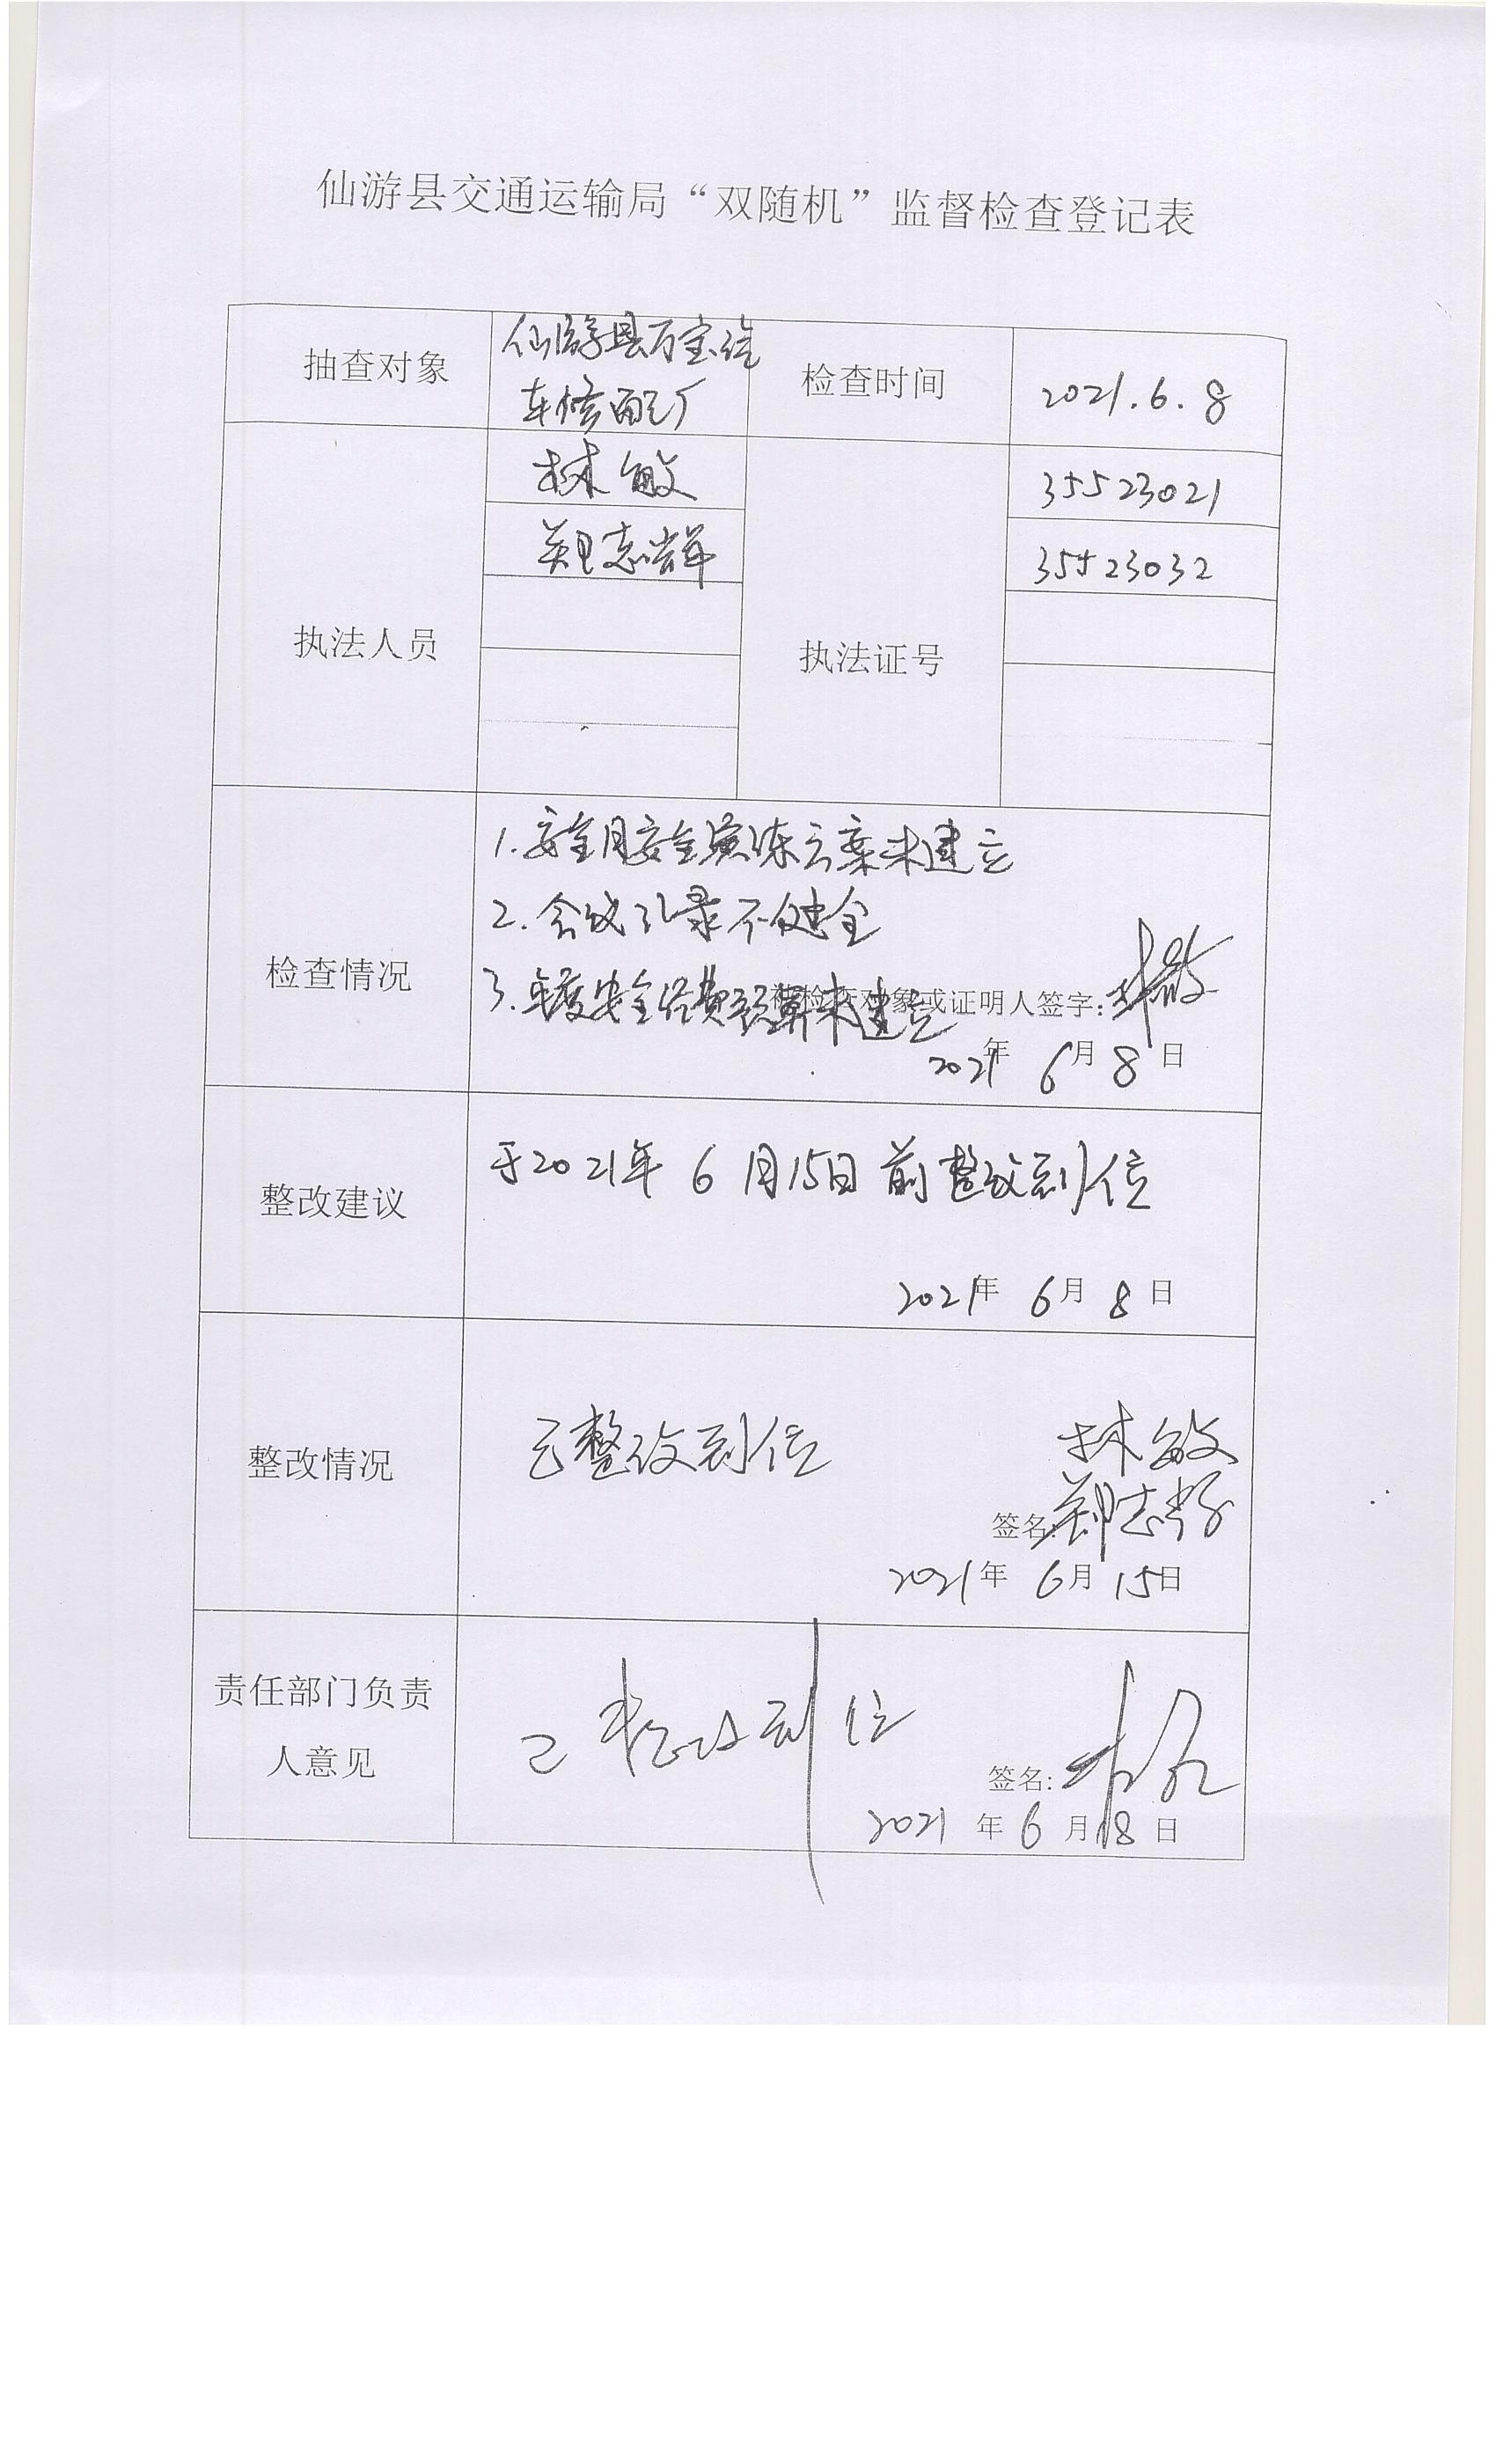 仙游县交通运输局“双随机”监督检查登记表
抽查对象
仙游县万宝汽
车修配厂
检查时间
2021.6.8
执法人员
林敏
郑志
执法证号
35523021
35523032
检查情况
1.安全月安全演练方案未建立
2.会议记录不健全
3.年度安全经费预算未建立
被检查对象或证明人签字:
2021年 6月 8日
整改建议
于2021年 6月15日前整改到位
2021年 6月 8日
整改情况
已整改到位
林敏
签名:郑志
2021年 6月15日
责任部门负责
人意见
已整改到位
签名:
2021年6月18日